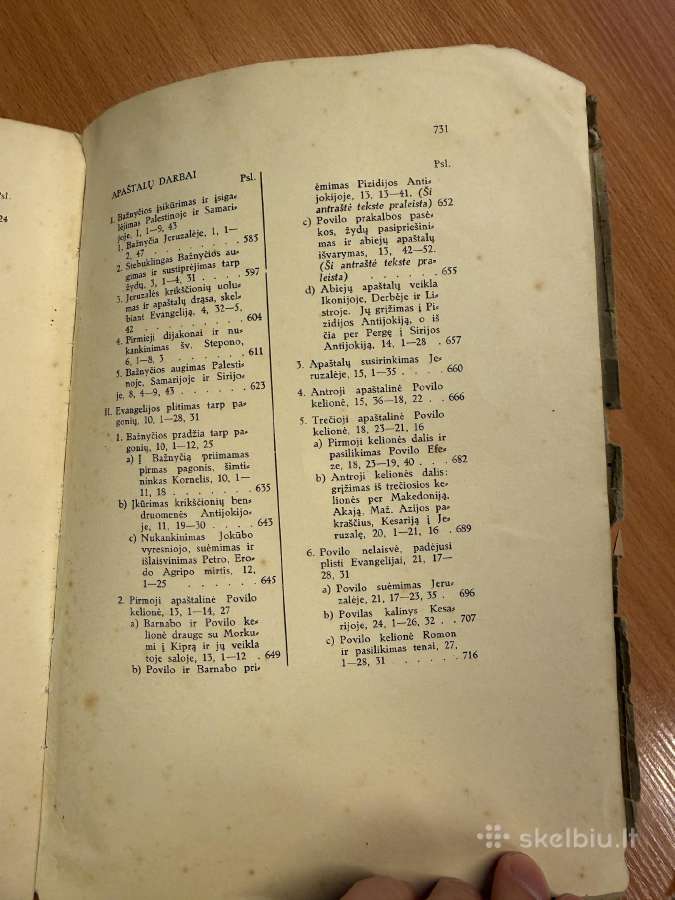 Psl.
24
731
APAŠTALŲ DARBAI Psl.
I. Bažnyčios įsikūrimas ir įsiga-
lėjimas Palestinoje ir Samari-
joje, 1, 1—9, 43
1. Bažnyčia Jeruzalėje, 1, 1—
2, 47 . . . . . . . 583
2. Stebuklingas Bažnyčios au-
gimas ir sustiprėjimas tarp
žydų, 3, 1—4, 31 . . . . 597
3. Jeruzalės krikščionių uolu-
mas ir apaštalų drąsa, skel-
biant Evangeliją, 4, 32—5,
42 . . . . . . . 604
4. Pirmieji dijakonai ir nu-
kankinimas šv. Stepono,
6, 1—8, 3 . . . . . . 611
5. Bažnyčios augimas Palesti-
noje, Samarijoje ir Sirijo-
je, 8, 4—9, 43 . . . . . 623
II. Evangelijos plitimas tarp pa-
gonių, 10, 1—28, 31
1. Bažnyčios pradžia tarp pa-
gonių, 10, 1—12, 25
a) Į Bažnyčią priimamas
pirmas pagonis, šimti-
ninkas Kornelis, 10, 1—
11, 18 . . . . . . . 635
b) Įkūrimas krikščionių ben-
druomenės Antijokijo-
je, 11, 19—30 . . . . 643
c) Nukankinimas Jokūbo
vyresniojo, suėmimas ir
išlaisvinimas Petro, Ero-
do Agripo mirtis, 12,
1—25 . . . . . . . 645
2. Pirmoji apaštalinė Povilo
kelionė, 13, 1—14, 27
a) Barnabo ir Povilo ke-
lionė drauge su Morku-
mi į Kiprą ir jų veikla
toje saloje, 13, 1—12 . 649
b) Povilo ir Barnabo pri-
Psl.
ėmimas Pizidijos Anti-
jokijoje, 13, 13—41. (Ši
antraštė tekste praleista) 652
c) Povilo prakalbos pasė-
kos, žydų pasipriešini-
mas ir abiejų apaštalų
išvarymas, 13, 42—52.
(Ši antraštė tekste pra-
leista) . . . . . . . 655
d) Abiejų apaštalų veikla
Ikonijoje, Derbėje ir Li-
stroje. Jų grįžimas į Pi-
zidijos Antijokiją, o iš
čia per Pergę į Sirijos
Antijokiją, 14, 1—28 . 657
3. Apaštalų susirinkimas Je-
ruzalėje, 15, 1—35 . . . . 660
4. Antroji apaštalinė Povilo
kelionė, 15, 36—18, 22 . . 666
5. Trečioji apaštalinė Povilo
kelionė, 18, 23—21, 16
a) Pirmoji kelionės dalis ir
pasilikimas Povilo Efe-
ze, 18, 23—19, 40 . . . 682
b) Antroji kelionės dalis:
grįžimas iš trečiosios ke-
lionės per Makedoniją,
Akają. Maž. Azijos pa-
kraščius, Kesariją į Je-
ruzalę, 20, 1—21, 16 . 689
6. Povilo nelaisvė, padėjusi
plisti Evangelijai, 21, 17—
28, 31
a) Povilo suėmimas Jeru-
zalėje, 21, 17—23, 35 . 696
b) Povilas kalinys Kesa-
rijoje, 24, 1—26, 32 . . 707
c) Povilo kelionė Romon
ir pasilikimas tenai, 27,
1—28, 31 . . . . . 716
skelbiu.lt